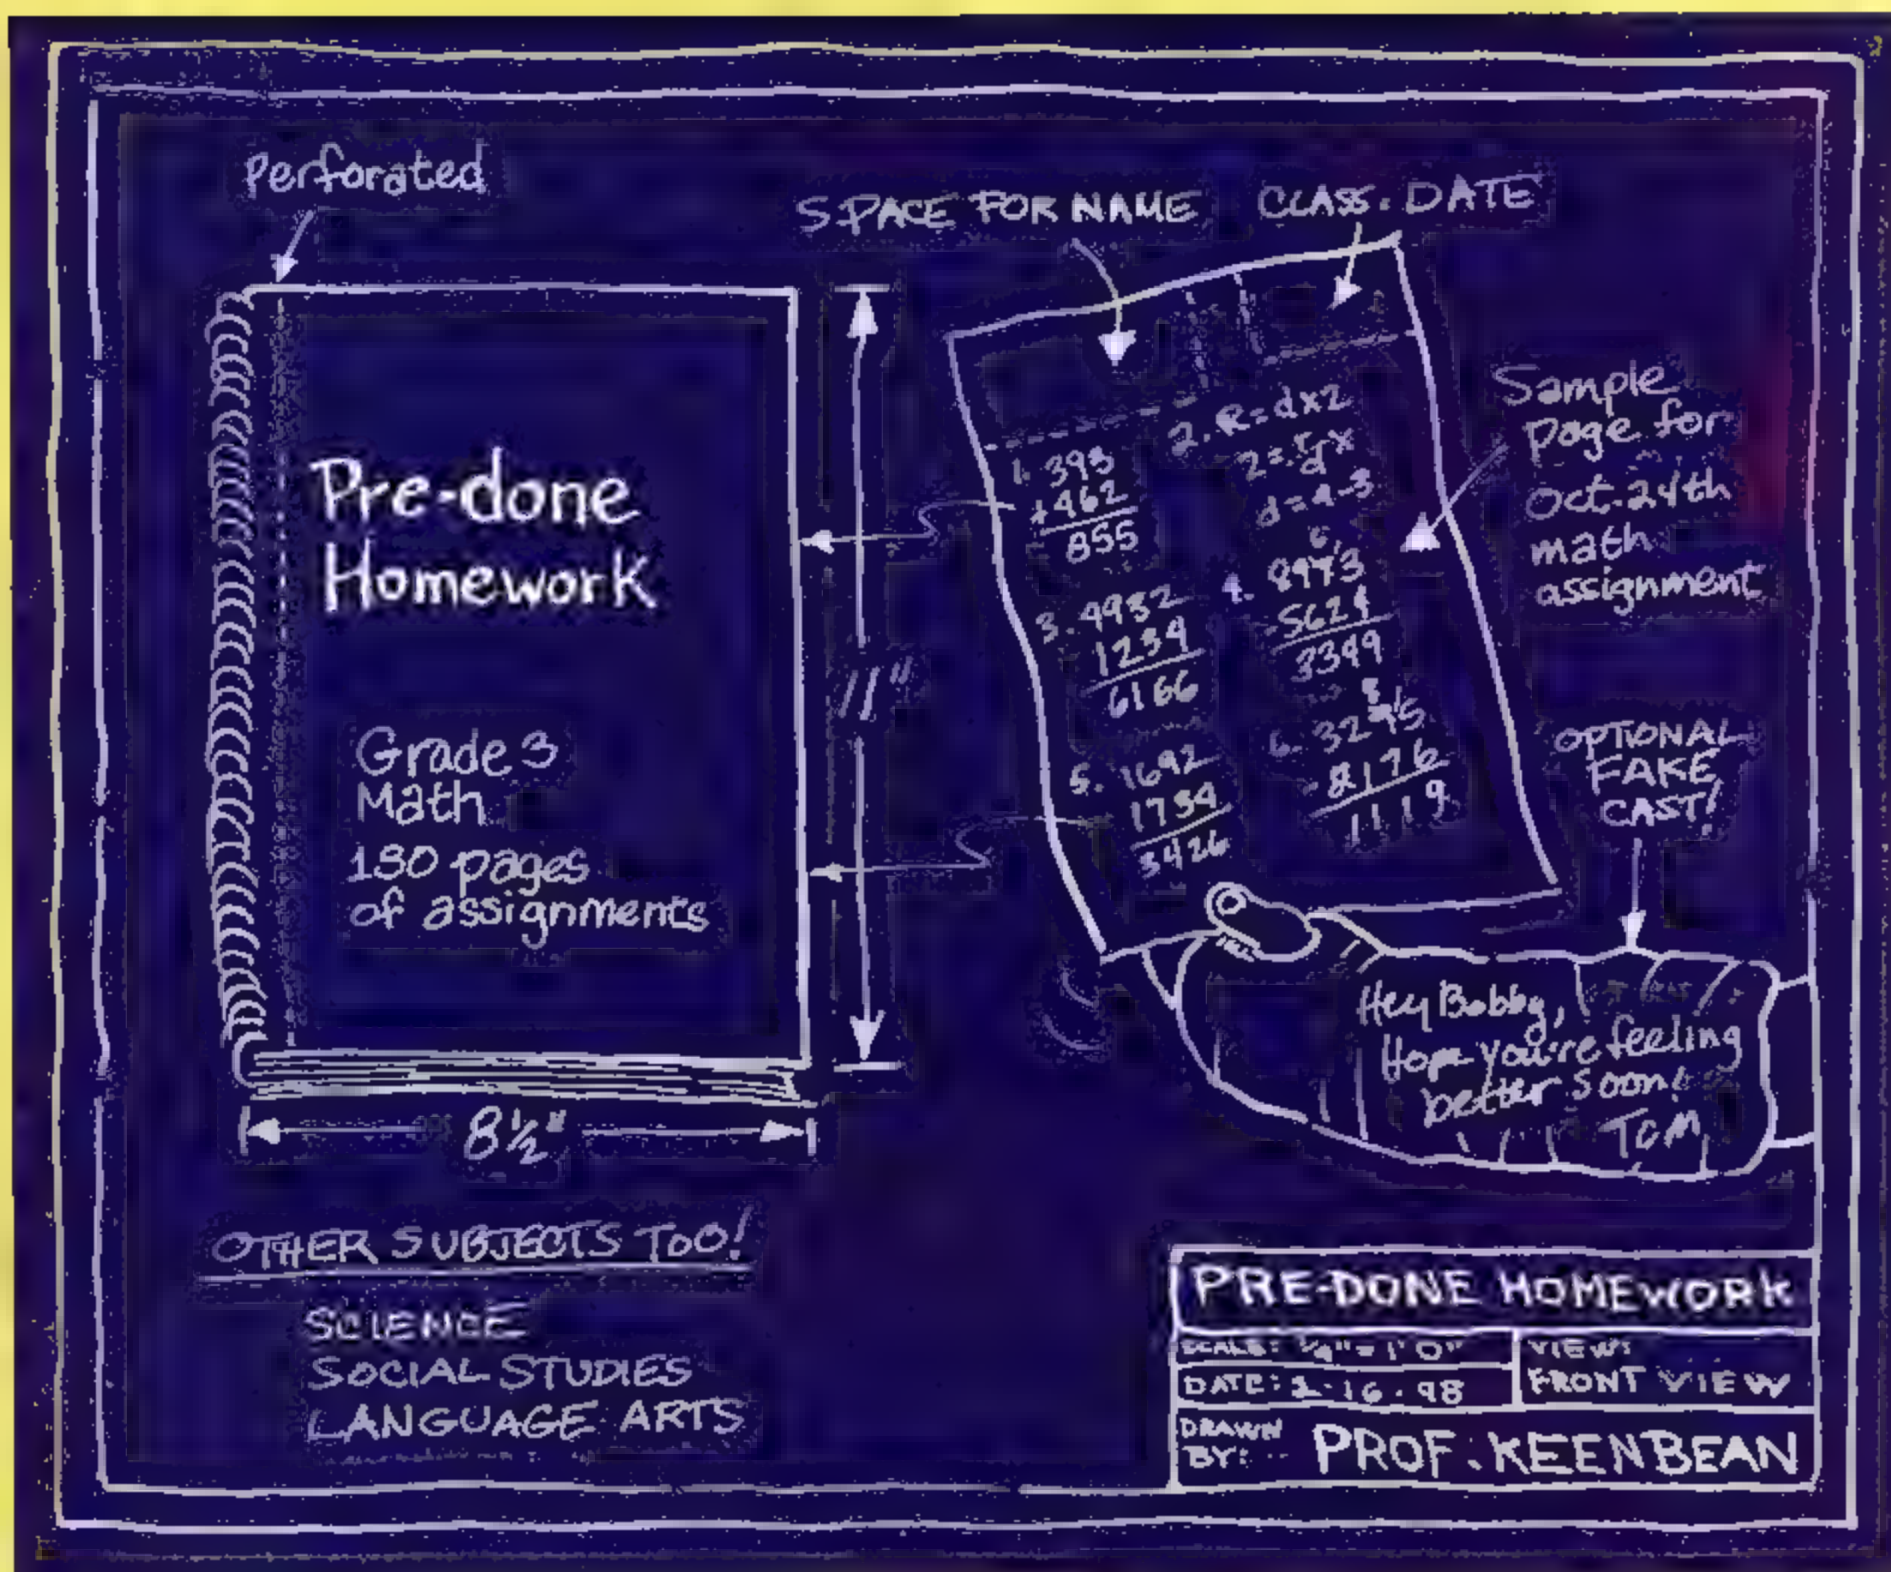 Perforated
SPACE FOR NAME
CLASS. DATE
Pre-done
Homework
Grade 3
Math
180 pages
of assignments
11"
8½"
1. 393
+462
855
2. R=dx2
3. 4932
1234
6166
4. 8973
-5624
3349
5. 1692
1734
3426
6. 3295
-2176
1119
Sample
page for
Oct. 24th
math
assignment
OPTIONAL
FAKE
CAST!
Hey Bobby,
Hope you're feeling
better soon!
Tom
OTHER SUBJECTS TOO!
SCIENCE
SOCIAL STUDIES
LANGUAGE ARTS
PRE-DONE HOMEWORK
SCALE: ¼" = 1'0"
VIEW:
FRONT VIEW
DATE: 2.16.98
DRAWN
BY:
PROF. KEENBEAN